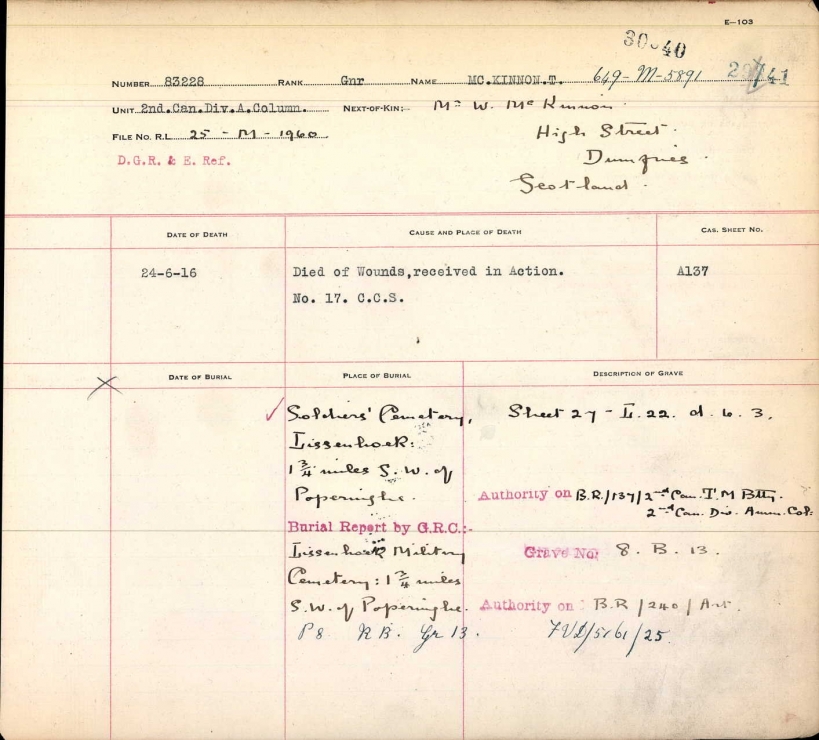 E—103
30-40
NUMBER 83228 RANK Gnr NAME MC.KINNON.T. 649-M-5891 41
UNIT 2nd.Can.Div.A.Column. NEXT-OF-KIN:- Mr W. McKinnon.
FILE NO. R.L. 25 - M - 1960. High Street.
D.G.R. & E. Ref. Dumfries.
Scotland.
DATE OF DEATH CAUSE AND PLACE OF DEATH CAS. SHEET NO.
24-6-16 Died of Wounds,received in Action. A137
No. 17. C.C.S.
DATE OF BURIAL PLACE OF BURIAL DESCRIPTION OF GRAVE
Soldiers' Cemetery, Sheet 27 - L. 22. d. 6. 3.
Lissenhoek:
1 3/4 miles S.W. of
Poperinghe. Authority on B.R/137/2nd Can. T.M Btty.
2nd Can. Div. Amm. Col:
Burial Report by G.R.C.:-
Lissenhoek Military Grave No. 8. B. 13.
Cemetery: 1 3/4 miles
S.W. of Poperinghe. Authority on B.R/240/Art.
P8 R B. Gr 13.